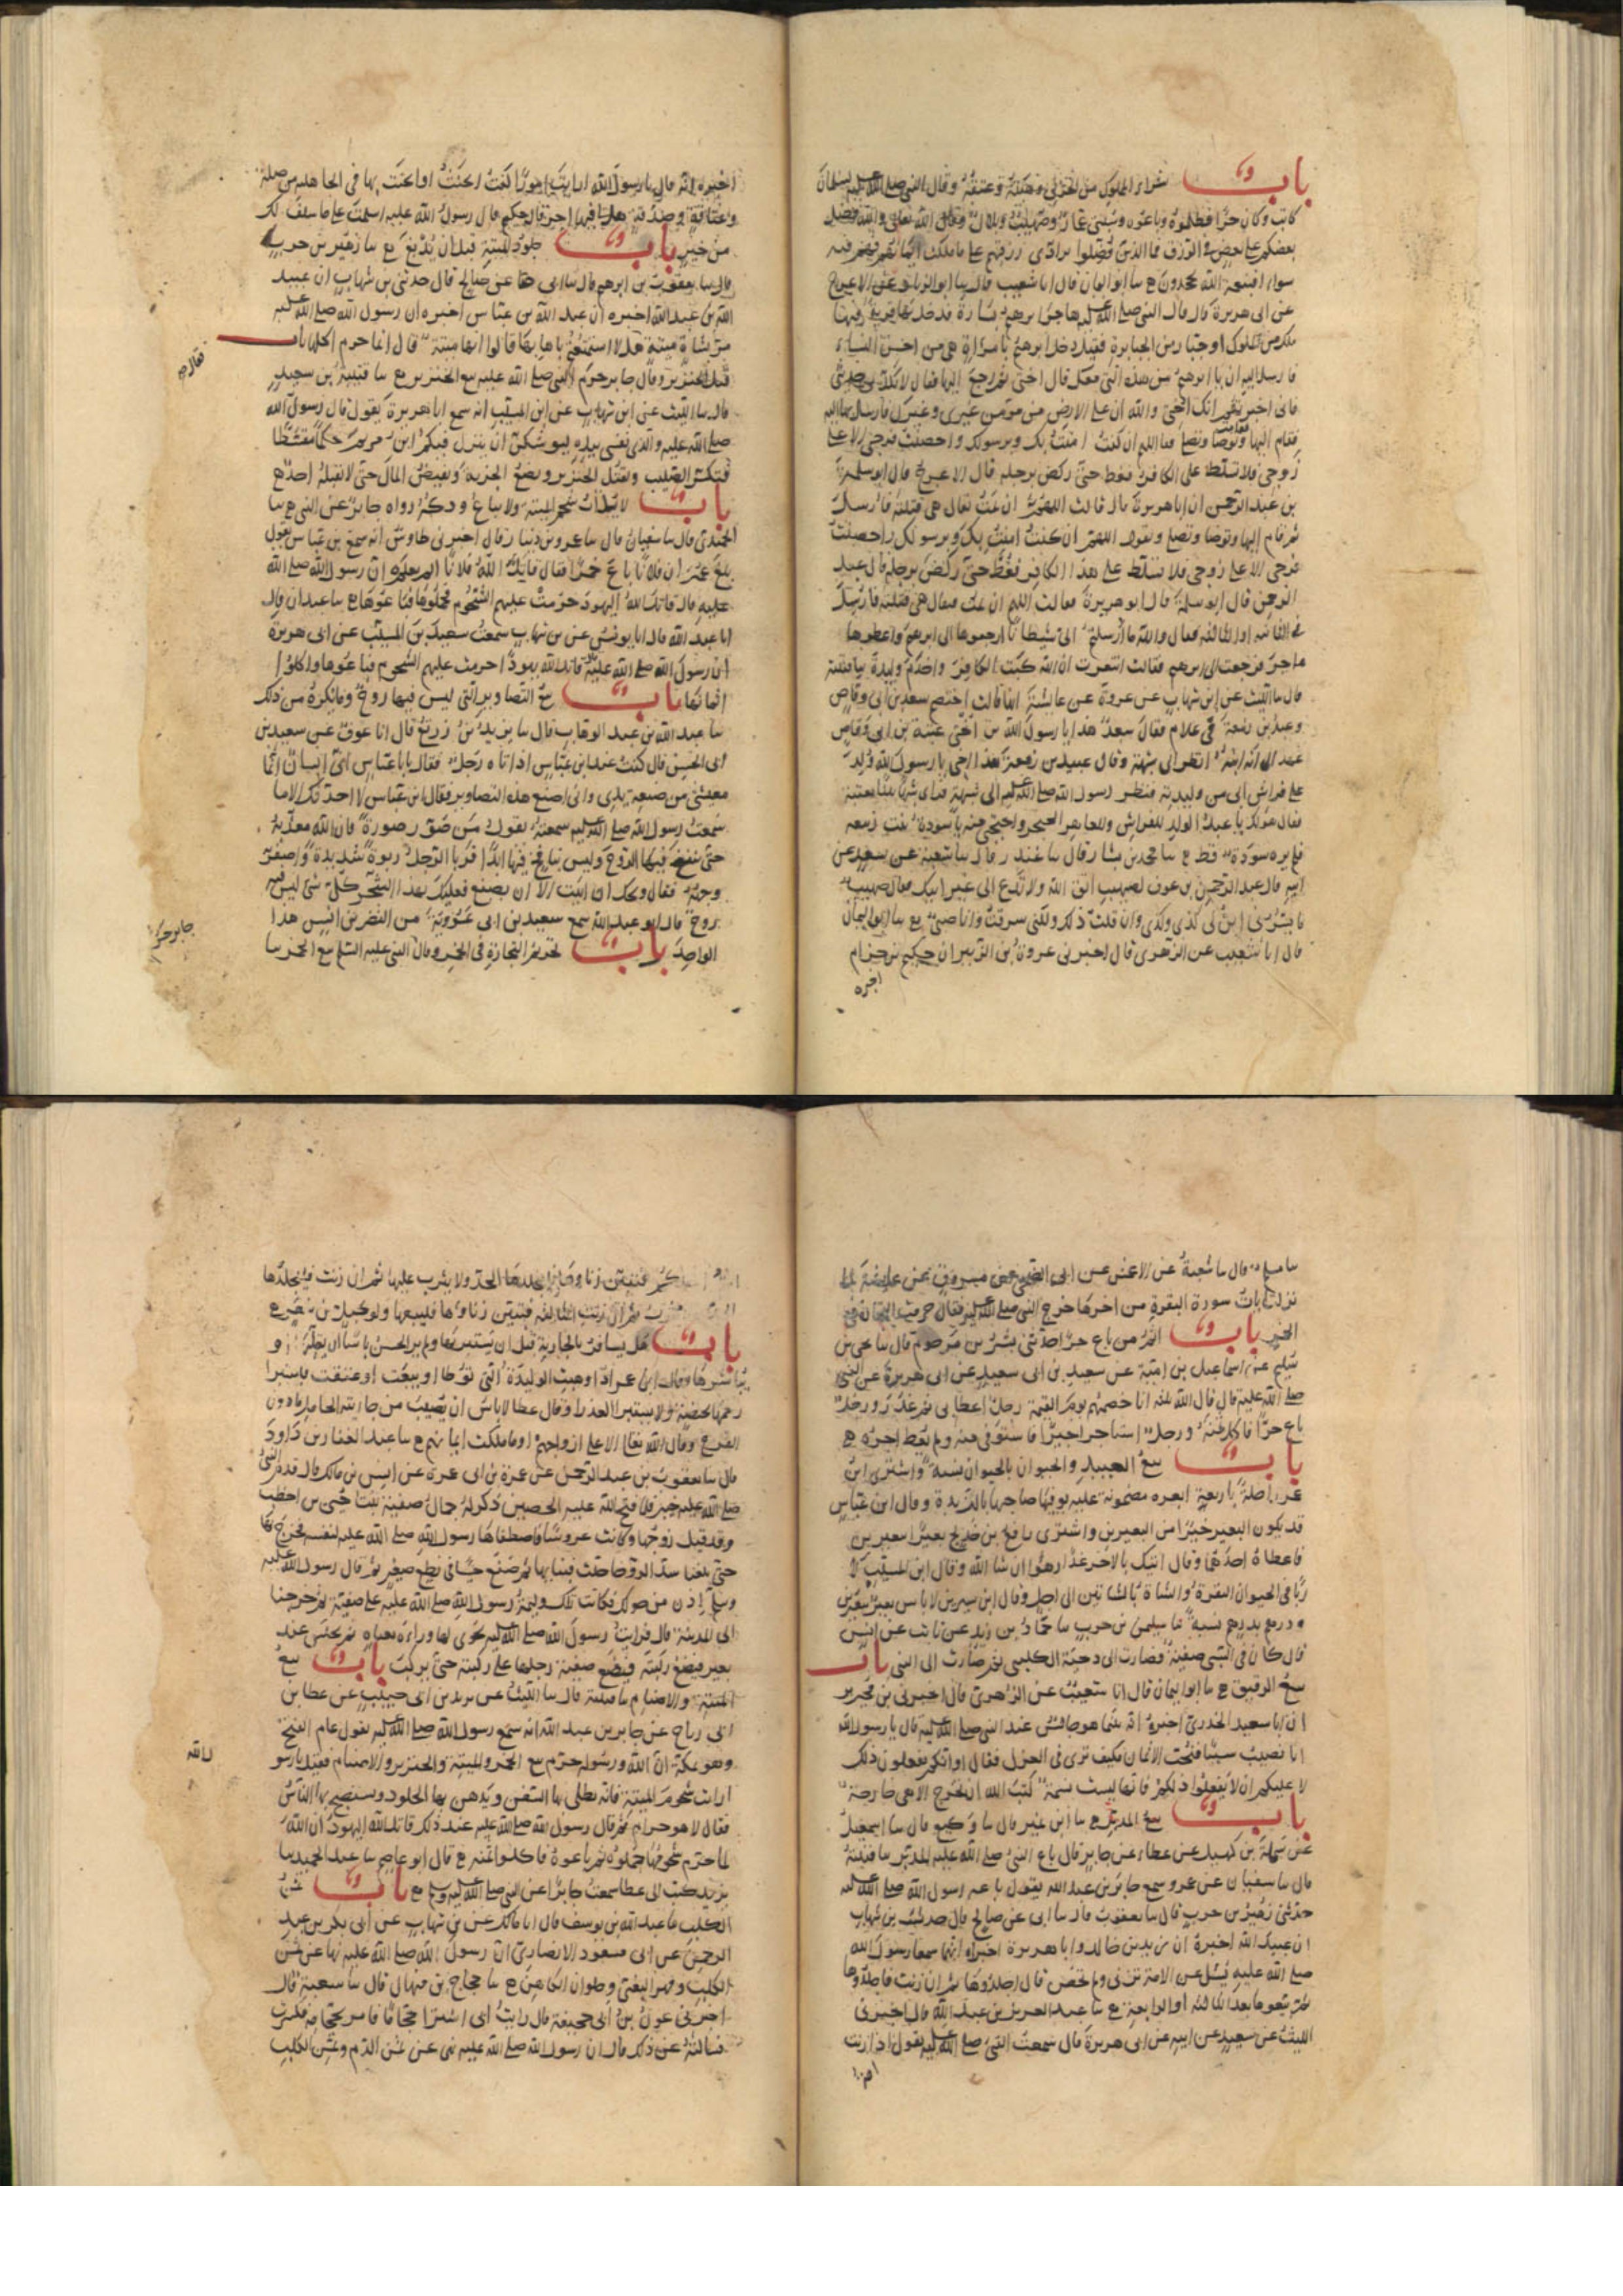 باب شراء المملوك من الحربي وهبته وعتقه وقال النبي صلى الله عليه لسلمان
كاتب وكان حرا فظلموه وباعوه وسبي عمار وصهيب وبلال وقال الله تعالى والله فضل
بعضكم على بعض في الرزق فما الذين فضلوا برادي رزقهم على ما ملكت ايمانهم فهم فيه
سواء افبنعمة الله يجحدون ح سا ابو اليمان قال انا شعيب قال سا ابو الزناد عن الاعرج
عن ابي هريرة قال قال النبي صلى الله عليه هاجر ابرهيم بسارة فدخل بها قرية فيها
ملك من الملوك او جبار من الجبابرة فقيل دخل ابرهيم بامراة هي من احسن النساء
فارسل اليه ان يا ابرهيم من هذه التي معك قال اختي ثم رجع اليها فقال لا تكذبي حديثي
فاني اخبرتهم انك اختي والله ان على الارض من مؤمن غيري وغيرك فارسل بها اليه
فقام اليها فقامت توضا وتصلي فقالت اللهم ان كنت امنت بك وبرسولك واحصنت فرجي الا على
زوجي فلا تسلط علي الكافر فغط حتى ركض برجله قال الاعرج قال ابو سلمة
بن عبد الرحمن ان ابا هريرة قال قالت اللهم ان يمت يقال هي قتلته فارسل
ثم قام اليها وتوضا وتصلي وتقول اللهم ان كنت امنت بك وبرسولك واحصنت
فرجي الا على زوجي فلا تسلط علي هذا الكافر فغط حتى ركض برجله قال عبد
الرحمن قال ابو سلمة قال ابو هريرة فقالت اللهم ان يمت فيقال هي قتلته فارسل
في الثانية او الثالثة فقال والله ما ارسلتم الي شيطانا ارجعوها الى ابرهيم واعطوها
هاجر فرجعت الى ابرهيم فقالت اشعرت ان الله كبت الكافر واخدم وليدة سا قتيبة
قال سا الليث عن ابن شهاب عن عروة عن عايشة انها قالت اختصم سعد بن ابي وقاص
وعبد بن زمعة في غلام فقال سعد هذا يا رسول الله بن اخي عتبة بن ابي وقاص
عهد الي انه ابنه انظر الى شبهه وقال عبد بن زمعة هذا اخي يا رسول الله ولد
على فراش ابي من وليدته فنظر رسول الله صلى الله عليه الى شبهه فراى شبها بينا بعتبة
فقال هو لك يا عبد الولد للفراش وللعاهر الحجر واحتجبي منه يا سودة بنت زمعة
فلم يره سودة قط ح سا محمد بن بشار قال سا غندر قال سا شعبة عن سعد عن
ابيه قال عبد الرحمن بن عوف لصهيب اتق الله ولا تدع الى غير ابيك فقال صهيب
ما يسرني ان لي كذى وكذى وان قلت ذلك ولكني سرقت وانا صبي ح سا ابو اليمان
قال انا شعيب عن الزهري قال اخبرني عروة بن الزبير ان حكيم بن حزام
اخبره
اخبره انه قال يا رسول الله ارايت امورا كنت اتحنث او اتحنت بها في الجاهلية من صلة
وعتاقة وصدقة هل لي فيها اجر قال حكيم قال رسول الله عليه اسلمت على ما سلف لك
من خير باب جلود الميتة قبل ان تدبغ ح سا زهير بن حرب
قال سا يعقوب بن ابرهيم قال سا ابي عن صالح قال حدثني بن شهاب ان عبيد
الله بن عبد الله اخبره ان عبد الله بن عباس اخبره ان رسول الله صلى الله عليه
مر بشاة ميتة هلا استمتعتم باهابها قالوا انها ميتة قال انما حرم اكلها باب
فقال
قتل الخنزير وقال جابر حرم النبي صلى الله عليه بيع الخنزير ح سا قتيبة بن سعيد
قال سا الليث عن ابن شهاب عن ابن المسيب انه سمع ابا هريرة يقول قال رسول الله
صلى الله عليه والذي نفسي بيده ليوشكن ان ينزل فيكم ابن مريم حكما مقسطا
فيكسر الصليب ويقتل الخنزير ويضع الجزية ويفيض المال حتى لا يقبله احد ح
باب لا يذاب شحم الميتة ولا يباع ودكه رواه جابر عن النبي ح سا
الحميدي قال سا سفيان قال سا عمرو بن دينار قال اخبرني طاوس انه سمع بن عباس يقول
بلغ عمر ان فلانا باع خمرا فقال قاتل الله فلانا الم يعلم ان رسول الله صلى الله
عليه قال قاتل الله اليهود حرمت عليهم الشحوم فجملوها فباعوها ح سا عبدان قال
انا عبد الله قال انا يونس عن بن شهاب سمعت سعيد بن المسيب عن ابي هريرة
ان رسول الله صلى الله عليه قاتل الله يهودا حرمت عليهم الشحوم فباعوها واكلوا
اثمانها باب بيع التصاوير التي ليس فيها روح وما يكره من ذلك
سا عبد الله بن عبد الوهاب قال سا يزيد بن زريع قال انا عوف عن سعيد بن
ابي الحسن قال كنت عند ابن عباس اذ اتاه رجل فقال يا با عباس اني انسان انما
معيشتي من صنعة يدي واني اصنع هذه التصاوير فقال ابن عباس لا احدثك الا ما
سمعت رسول الله صلى الله عليه سمعته يقول من صور صورة فان الله معذبه
حتى ينفخ فيها الروح وليس بنافخ فيها ابدا فربا الرجل ربوة شديدة واصفر
وجهه فقال ويحك ان ابيت الا ان تصنع فعليك بهذا الشجر كل شي ليس فيه
روح قال ابو عبد الله سمع سعيد بن ابي عروبة من النضر بن انس هذا
الواحد باب تحريم التجارة في الخمر وقال النبي عليه السلم بيع الخمر سا
جابر حرم
سا مسلم قال سا شعبة عن الاعمش عن ابي الضحى عن مسروق عن عايشة لما
نزلت ايات سورة البقرة من اخرها خرج النبي صلى الله عليه فقال حرمت التجارة في
الخمر باب اثم من باع حرا حدثني بشر بن مرحوم قال سا يحيى بن
سليم عن اسماعيل بن امية عن سعيد بن ابي سعيد عن ابي هريرة عن النبي
صلى الله عليه قال قال الله ثلثة انا خصمهم يوم القيمة رجل اعطا بي ثم غدر ورجل
باع حرا فاكل ثمنه ورجل استاجر اجيرا فاستوفى منه ولم يعط اجره ح
باب بيع العبيد والحيوان بالحيوان نسية واشترى ابن
عمر راحلة باربعة ابعرة مضمونة عليه يوفيها صاحبها بالربذة وقال ابن عباس
قد يكون البعير خيرا من البعيرين واشترى رافع بن خديج بعيرا ببعيرين
فاعطاه احدهما وقال اتيك بالاخر غدا رهوا ان شا الله وقال ابن المسيب لا
ربا في الحيوان البقرة والشاة بالشاتين الى اجل وقال ابن سيرين لا باس بعير ببعيرين
ودرهم بدرهم نسية سا سليمن بن حرب سا حماد بن زيد عن ثابت عن انس
قال كان في السبي صفية فصارت الى دحية الكلبي ثم صارت الى النبي باب
بيع الرقيق ح سا ابو اليمان قال انا شعيب عن الزهري قال اخبرني بن محيريز
ان ابا سعيد الخدري اخبره انه بينما هو جالس عند النبي صلى الله عليه قال يا رسول الله
انا نصيب سبيا فنحب الاثمان فكيف ترى في العزل فقال اوانكم تفعلون ذلك
لا عليكم ان لا تفعلوا ذلكم فانها ليست نسمة كتب الله ان تخرج الا هي خارجة
باب بيع المدبر ح سا ابن نمير قال سا وكيع قال سا اسمعيل
عن سلمة بن كهيل عن عطاء عن جابر قال باع النبي صلى الله عليه المدبر سا قتيبة
قال سا سفيان عن عمرو سمع جابر بن عبد الله يقول باعه رسول الله صلى الله عليه
حدثني زهير بن حرب قال سا يعقوب قال سا ابي عن صالح قال حدث بن شهاب
ان عبيد الله اخبره ان زيد بن خالد وابا هريرة اخبراه انهما سمعا رسول الله
صلى الله عليه يسئل عن الامة تزني ولم تحصن قال اجلدوها ثم ان زنت فاجلدوها
ثم بيعوها بعد الثالثة او الرابعة ح سا عبد العزيز بن عبد الله قال اخبرني
الليث عن سعيد عن ابيه عن ابي هريرة قال سمعت النبي صلى الله عليه يقول اذا زنت
امة
امة احدكم فتبين زناها فليجلدها الحد ولا يثرب عليها ثم ان زنت فليجلدها
الحد ولا يثرب ثم ان زنت الثالثة فتبين زناها فليبعها ولو بحبل من شعر ح
باب هل يسافر بالجارية قبل ان يستبريها ولم ير الحسن باسا ان يقبلها او
يباشرها وقال ابن عمر اذا وهبت الوليدة التي توطا او بيعت او عتقت فليستبرا
رحمها بحيضة ولا يستبرا العذرا وقال عطا لا باس ان يصيب من جاريته الحامل ما دون
الفرج وقال الله تعالى الا على ازواجهم او ما ملكت ايمانهم ح سا عبد الغفار بن داود
قال سا يعقوب بن عبد الرحمن عن عمرو بن ابي عمرو عن انس بن مالك قال قدم النبي
صلى الله عليه خيبر فلما فتح الله عليه الحصن ذكر له جمال صفية بنت حيي بن اخطب
وقد قتل زوجها وكانت عروسا فاصطفاها رسول الله صلى الله عليه لنفسه فخرج بها
حتى بلغنا سد الروحا حلت فبنا بها ثم صنع حيسا في نطع صغير ثم قال رسول الله عليه
وسلم اذن من حولك فكانت تلك وليمة رسول الله صلى الله عليه على صفية ثم خرجنا
الى المدينة قال فرايت رسول الله صلى الله عليه يحوي لها وراءه بعباءة ثم يجلس عند
بعيره فيضع ركبته فتضع صفية رجلها على ركبته حتى تركب باب بيع
الميتة والاصنام سا قتيبة قال سا الليث عن يزيد بن ابي حبيب عن عطا بن
ابي رباح عن جابر بن عبد الله انه سمع رسول الله صلى الله عليه يقول عام الفتح
وهو بمكة ان الله ورسوله حرم بيع الخمر والميتة والخنزير والاصنام فقيل يا رسو
ارايت شحوم الميتة فانه يطلى بها السفن ويدهن بها الجلود ويستصبح بها الناس
ل الله
فقال لا هو حرام ثم قال رسول الله صلى الله عليه عند ذلك قاتل الله اليهود ان الله
لما حرم شحومها جملوه ثم باعوه فاكلوا ثمنه ح قال ابو عاصم سا عبد الحميد سا
يزيد كتب الي عطا سمعت جابرا عن النبي صلى الله عليه وسلم ح باب ثمن
الكلب سا عبد الله بن يوسف قال انا مالك عن بن شهاب عن ابي بكر بن عبد
الرحمن عن ابي مسعود الانصاري ان رسول الله صلى الله عليه نها عن ثمن
الكلب ومهر البغي وحلوان الكاهن ح سا حجاج بن منهال قال سا شعبة قال
اخبرني عون بن ابي جحيفة قال رايت ابي اشترا حجاما فامر بمحاجمه فكسرت
فسالته عن ذلك قال ان رسول الله صلى الله عليه نهى عن ثمن الدم وثمن الكلب